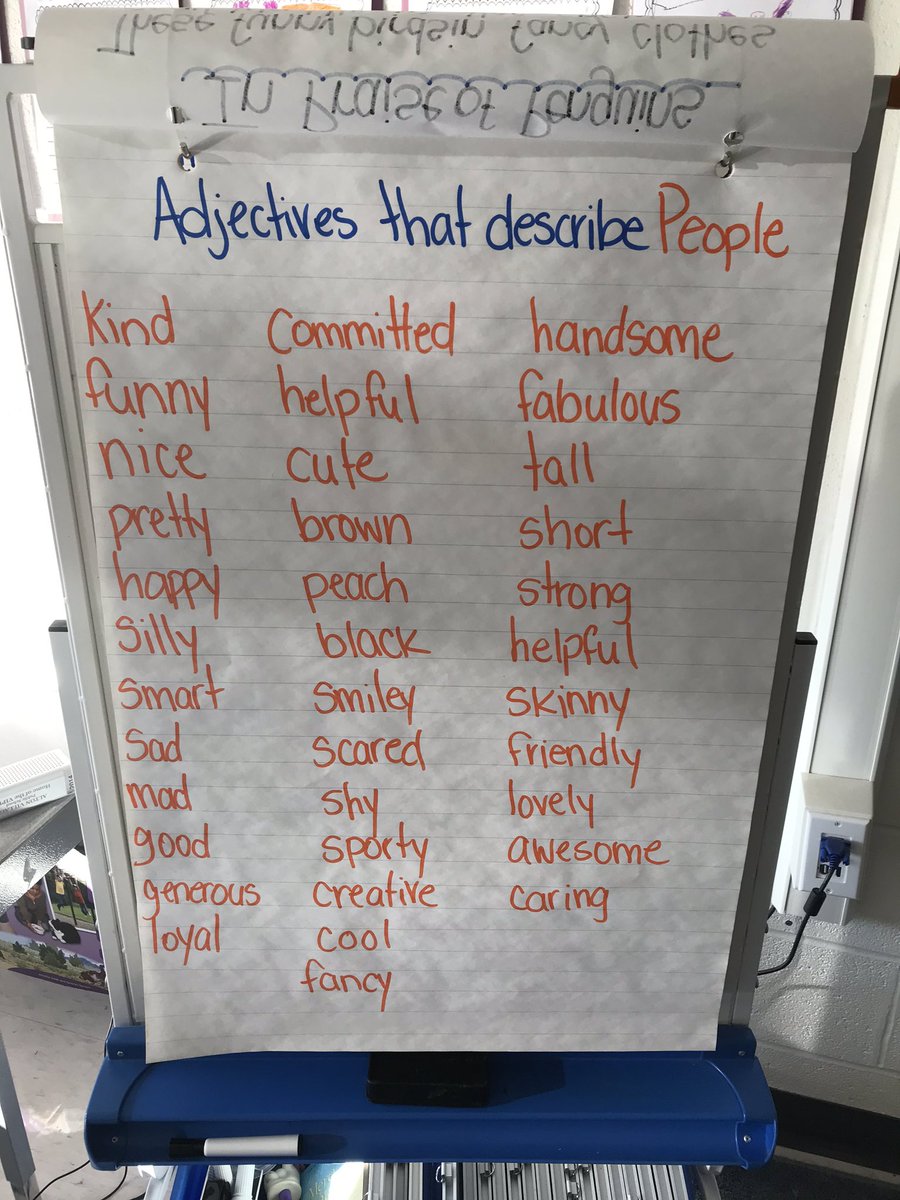 These funny birds in fancy clothes
In Praise of Penguins
Adjectives that describe People
Kind
funny
nice
pretty
happy
Silly
Smart
Sad
mad
good
generous
loyal
Committed
helpful
cute
brown
peach
black
Smiley
Scared
shy
sporty
creative
cool
fancy
handsome
fabulous
tall
short
strong
helpful
skinny
friendly
lovely
awesome
caring